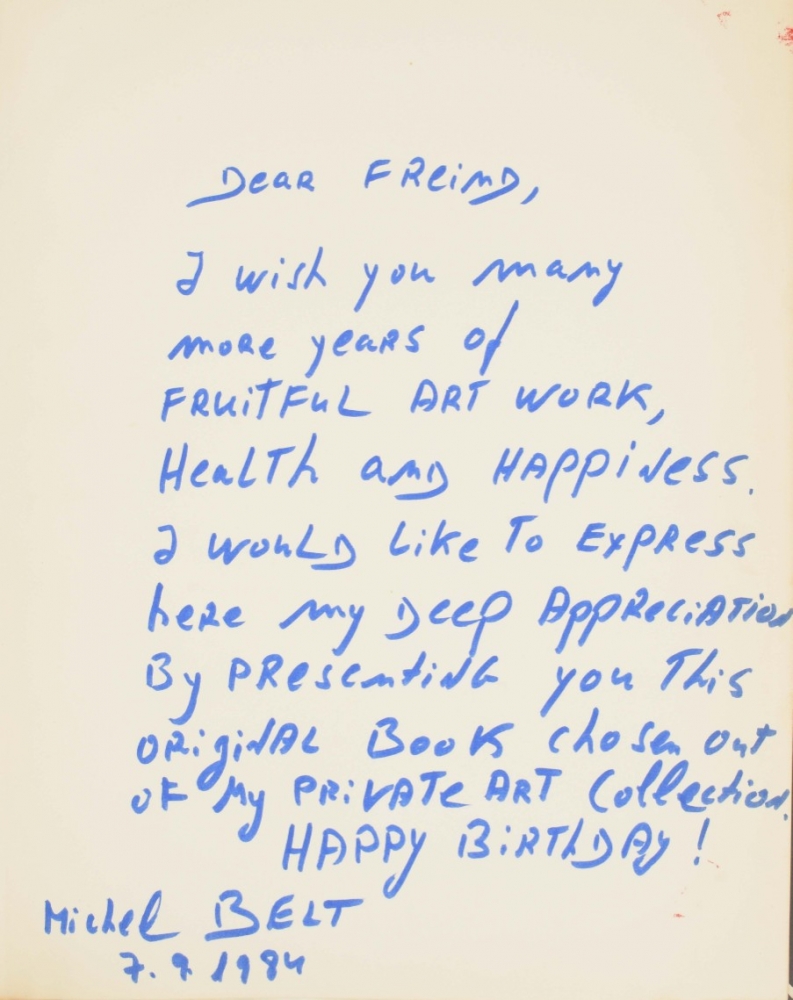 Dear FReinD,
I wish you many
more years of
FRuiTFuL ART WORK,
HeaLTh and HAppiNess.
I wouLD Like To ExpRess
heRe my Deep AppReciATion
By PResentiNG you This
ORigiNAL Book chosen out
OF My PRiVATe ART Collection.
HAPPY BiRThDAy!
Michel BELT
7.9 1984